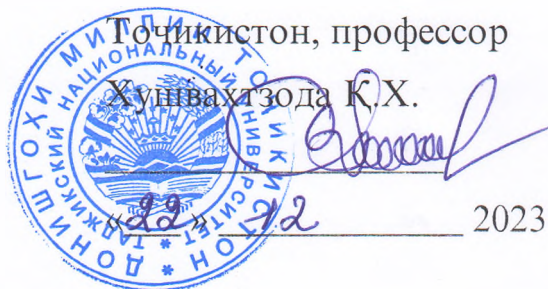 Тоҷикистон, профессор
Хушвахтзода Қ.Х.
«22» 12 2023
ДОНИШГОҲИ МИЛЛИИ ТОҶИКИСТОН
ТАДЖИКСКИЙ НАЦИОНАЛЬНЫЙ УНИВЕРСИТЕТ